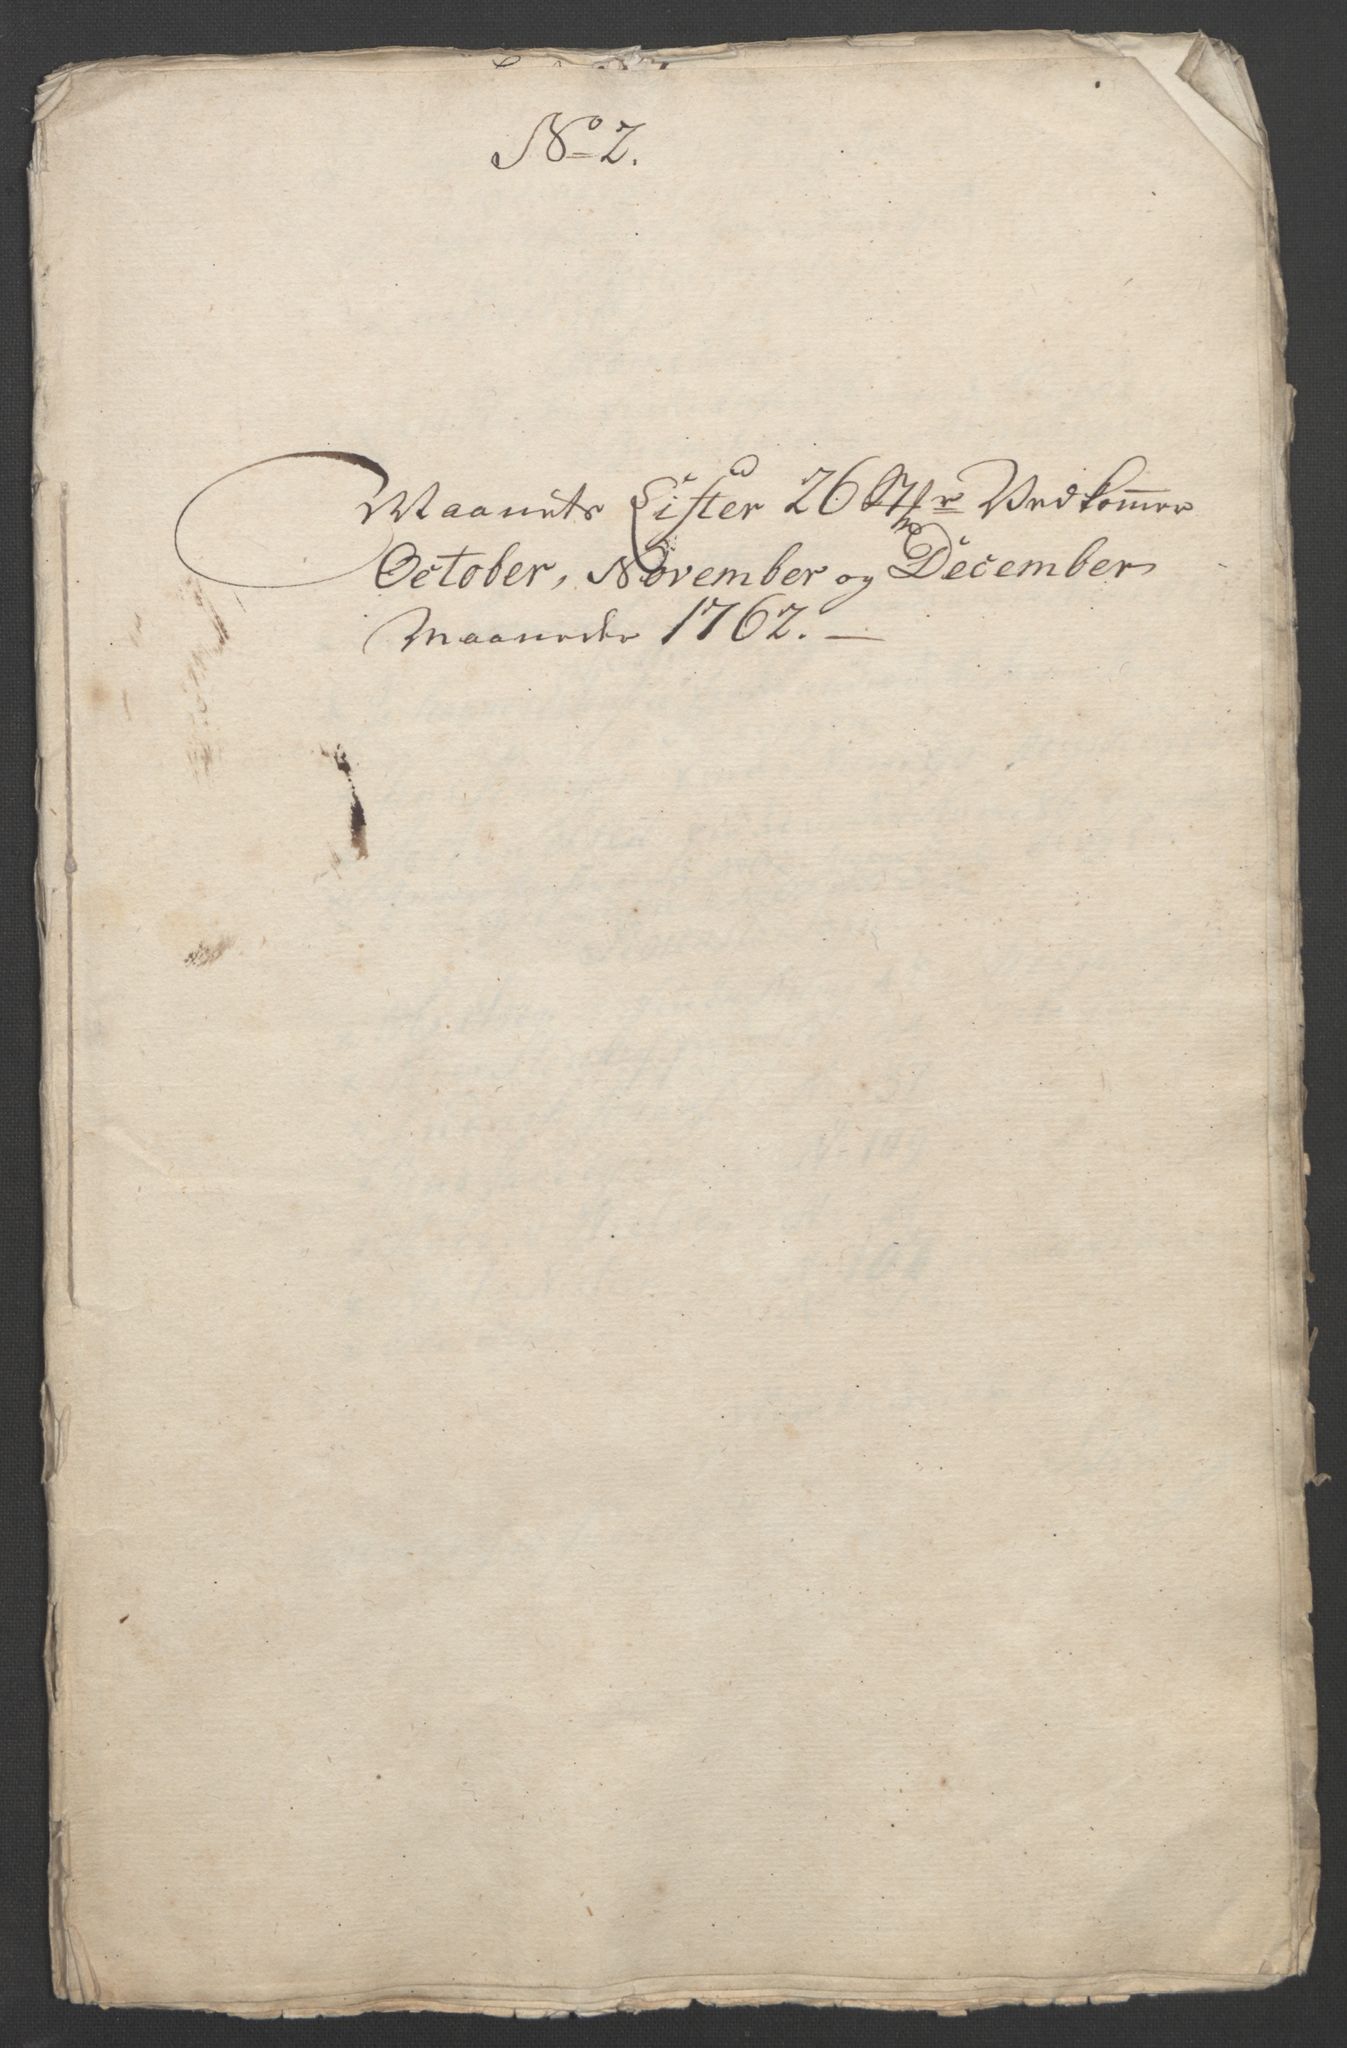 No 2.
Maanets Lister 26 St/r Vedkommer
October, November og December
Maaneder 1762. —